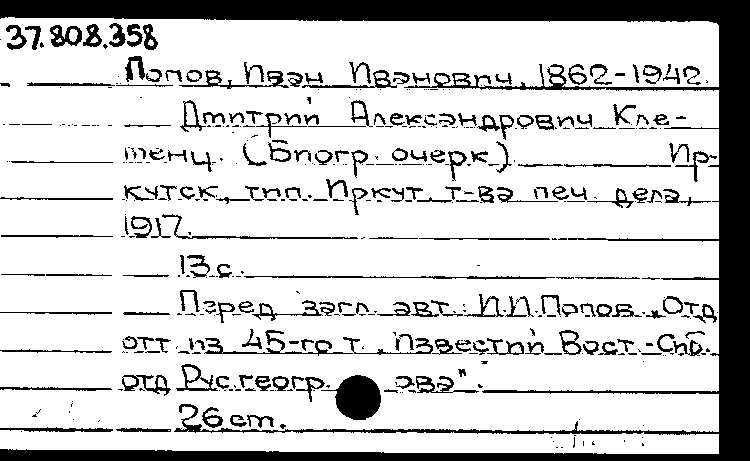 37.808.358
Попов, Иван Иванович, 1862-1942.
Дмитрий Александрович Кле-
менц. (Биогр. очерк.) Ир-
кутск, тип. Иркут. т-ва печ. дела,
1917.
13 с.
Перед загл. авт.: И.И.Попов. „Отд.
отт. из 45-го т. „Известий Вост.-Сиб.
отд. Рус. геогр. ава".
26 cm.